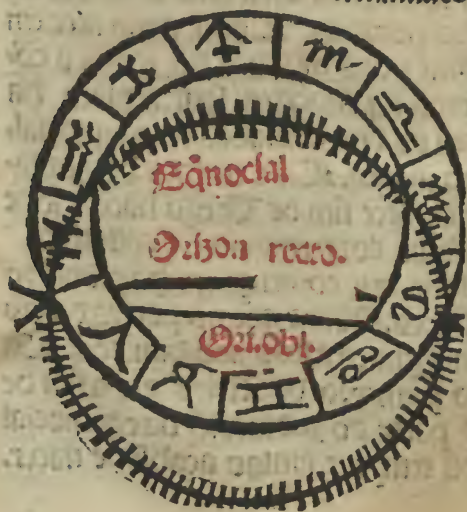 Eq̃nocial
Orizon recto.
Ori.obl.